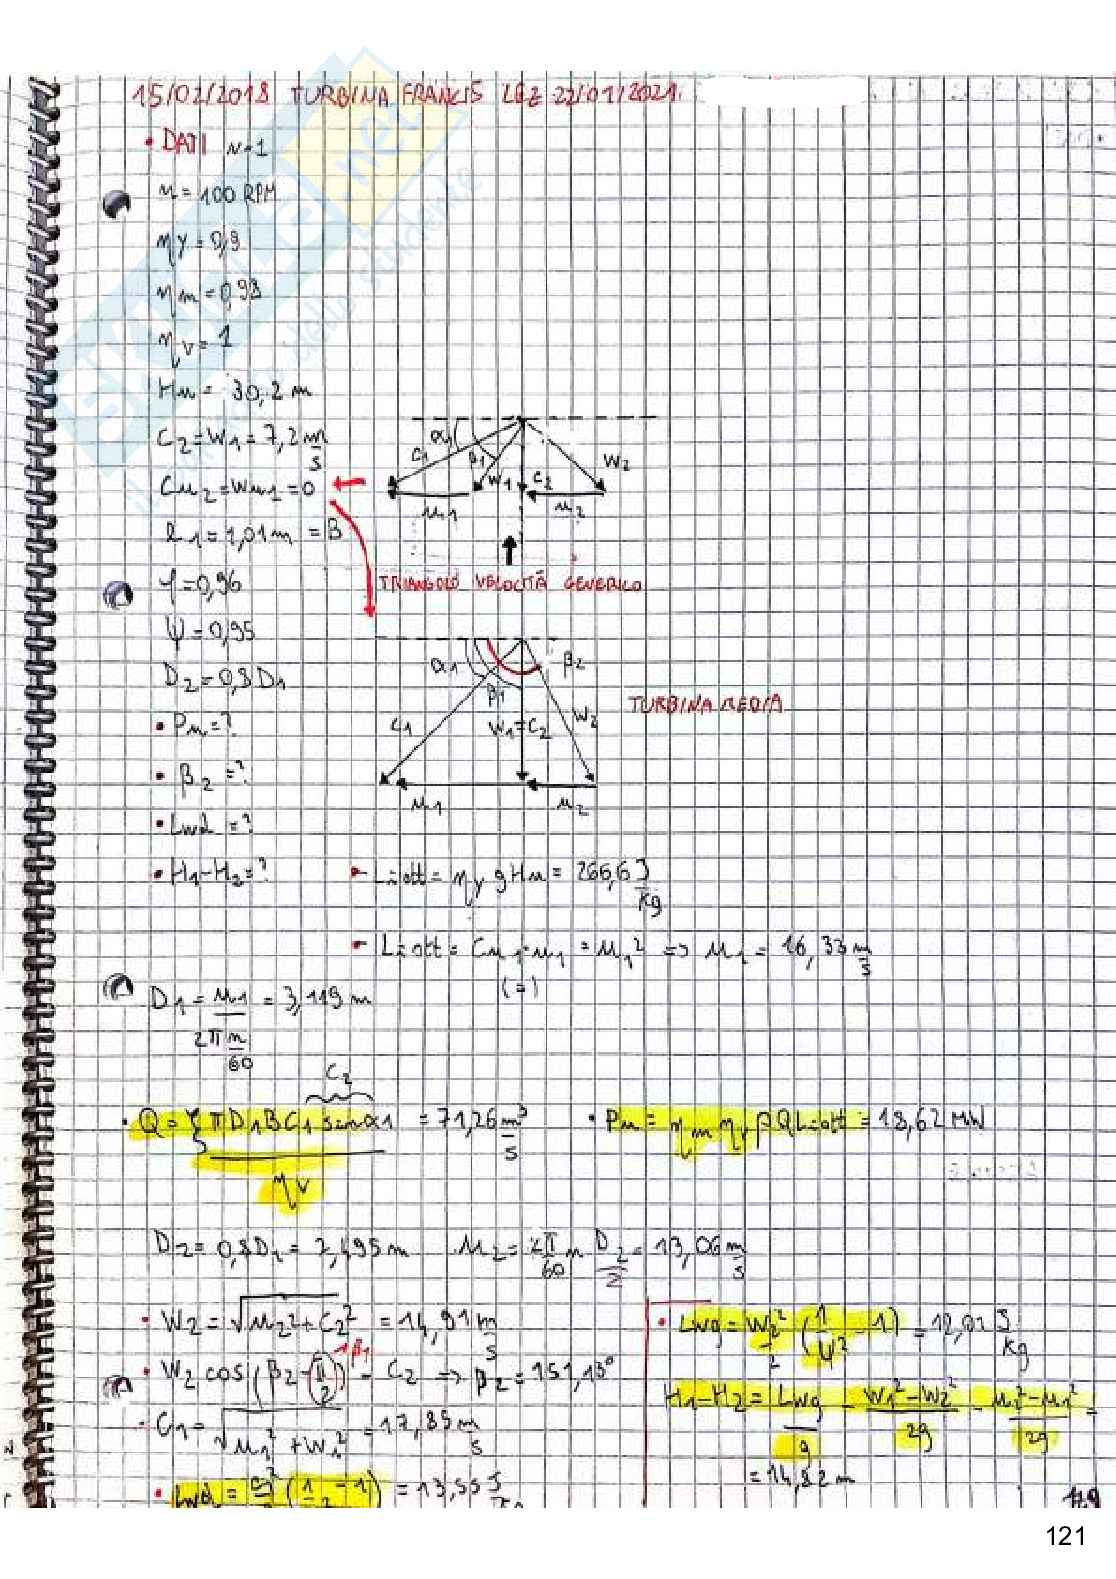 15/02/2018 TURBINA FRANCIS LEZ 22/01/2021.
• DATI N=1
n = 100 RPM
ηy = 0,9
ηm = 0,98
ηv = 1
Hn = 30,2 m
C2 = W1 = 7,2 m/s
Cu2 = Wu1 = 0
l1 = 1,01 m = B
φ = 0,96
ψ = 0,95
D2 = 0,8 D1
• Pn = ?
• β2 = ?
• Lwd = ?
• H1-H2 = ?
α1 C1 β1 W1 C2 W2
u1 u2
TRIANGOLO VELOCITÀ GENERICO
α1 β1 β2
C1 W1=C2 W2
u1 u2
TURBINA MEDIA
Liott = ηy g Hn = 266,6 J/kg
Liott = Cu1·u1 = u1² => u1 = 16,33 m/s
(=)
D1 = u1/(2π n/60) = 3,119 m
C2
• Q = ξ π D1 B C1 sinα1 / ηv = 71,26 m³/s
• Pn = ηm ηv ρ Q Liott = 18,62 MW
D2 = 0,8 D1 = 2,495 m
u2 = 2π/60 n D2/2 = 13,06 m/s
• W2 = √(u2² + C2²) = 14,91 m/s
• W2 cos(β2 - π/2) = C2 → β2 = 151,13°
β1
• C1 = √(u1² + W1²) = 17,85 m/s
• Lwd = C1²/2 (1/φ² - 1) = 13,55 J/kg
• Lwg = W2²/2 (1/ψ² - 1) = 12,02 J/kg
H1-H2 = Lwg/g - (W1²-W2²)/2g - (u2²-u1²)/2g =
= 14,82 m
119
121